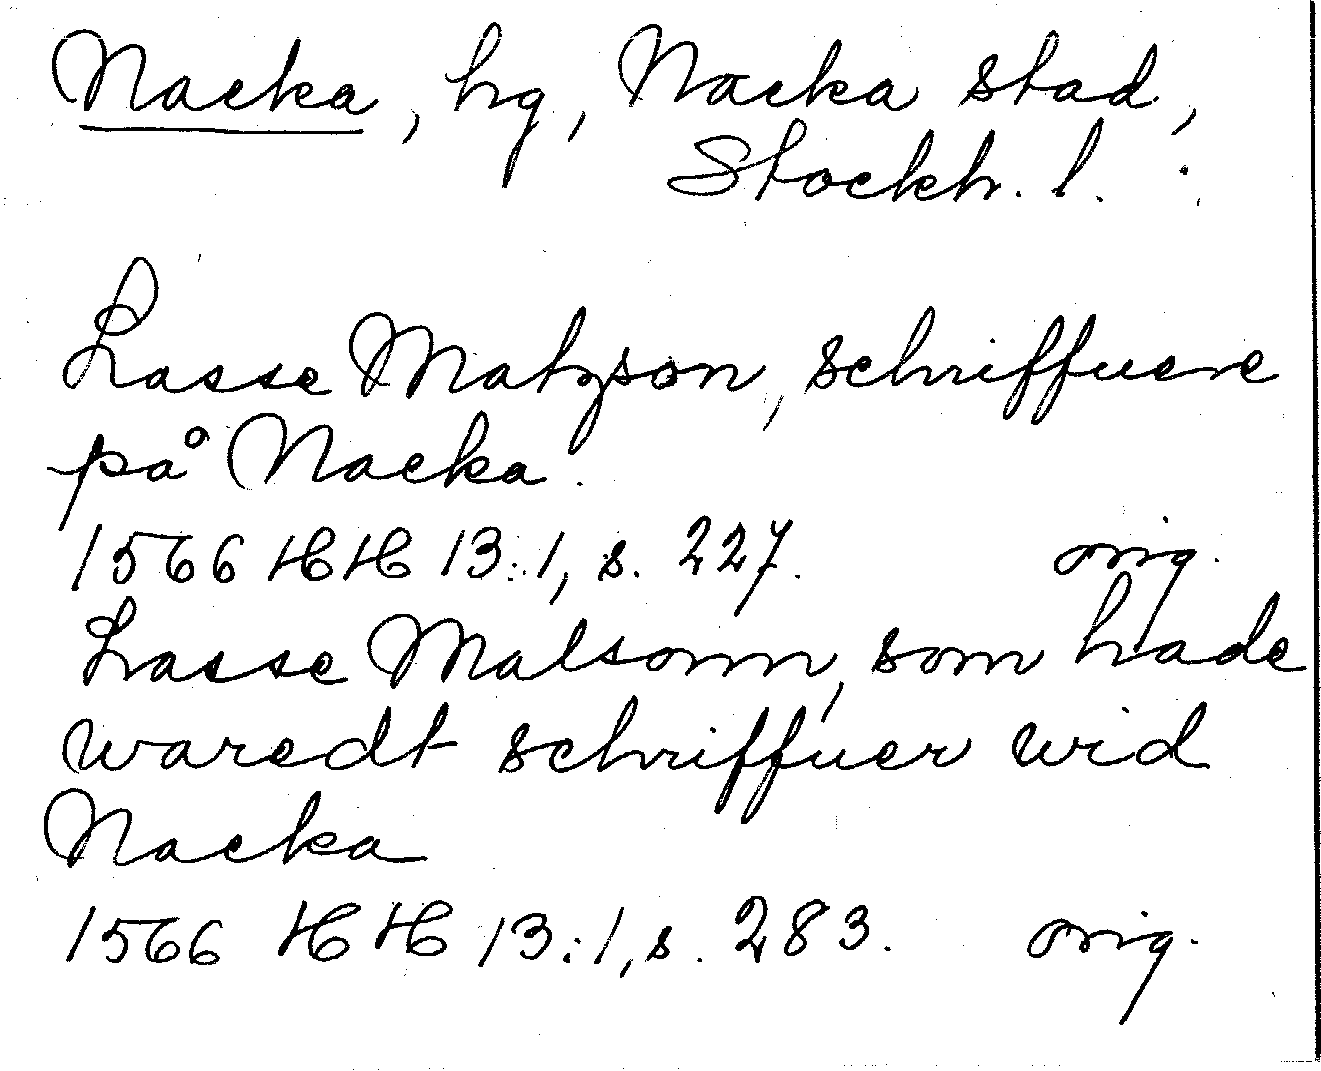 Nacka, hg, Nacka stad,
Stockh. l.
Lasse Matzson, schriffuere
på Nacka.
1566 HH 13:1, s. 227. orig.
Lasse Matsonn, som hade
waredt schriffuer wid
Nacka
1566 HH 13:1, s. 283. orig.